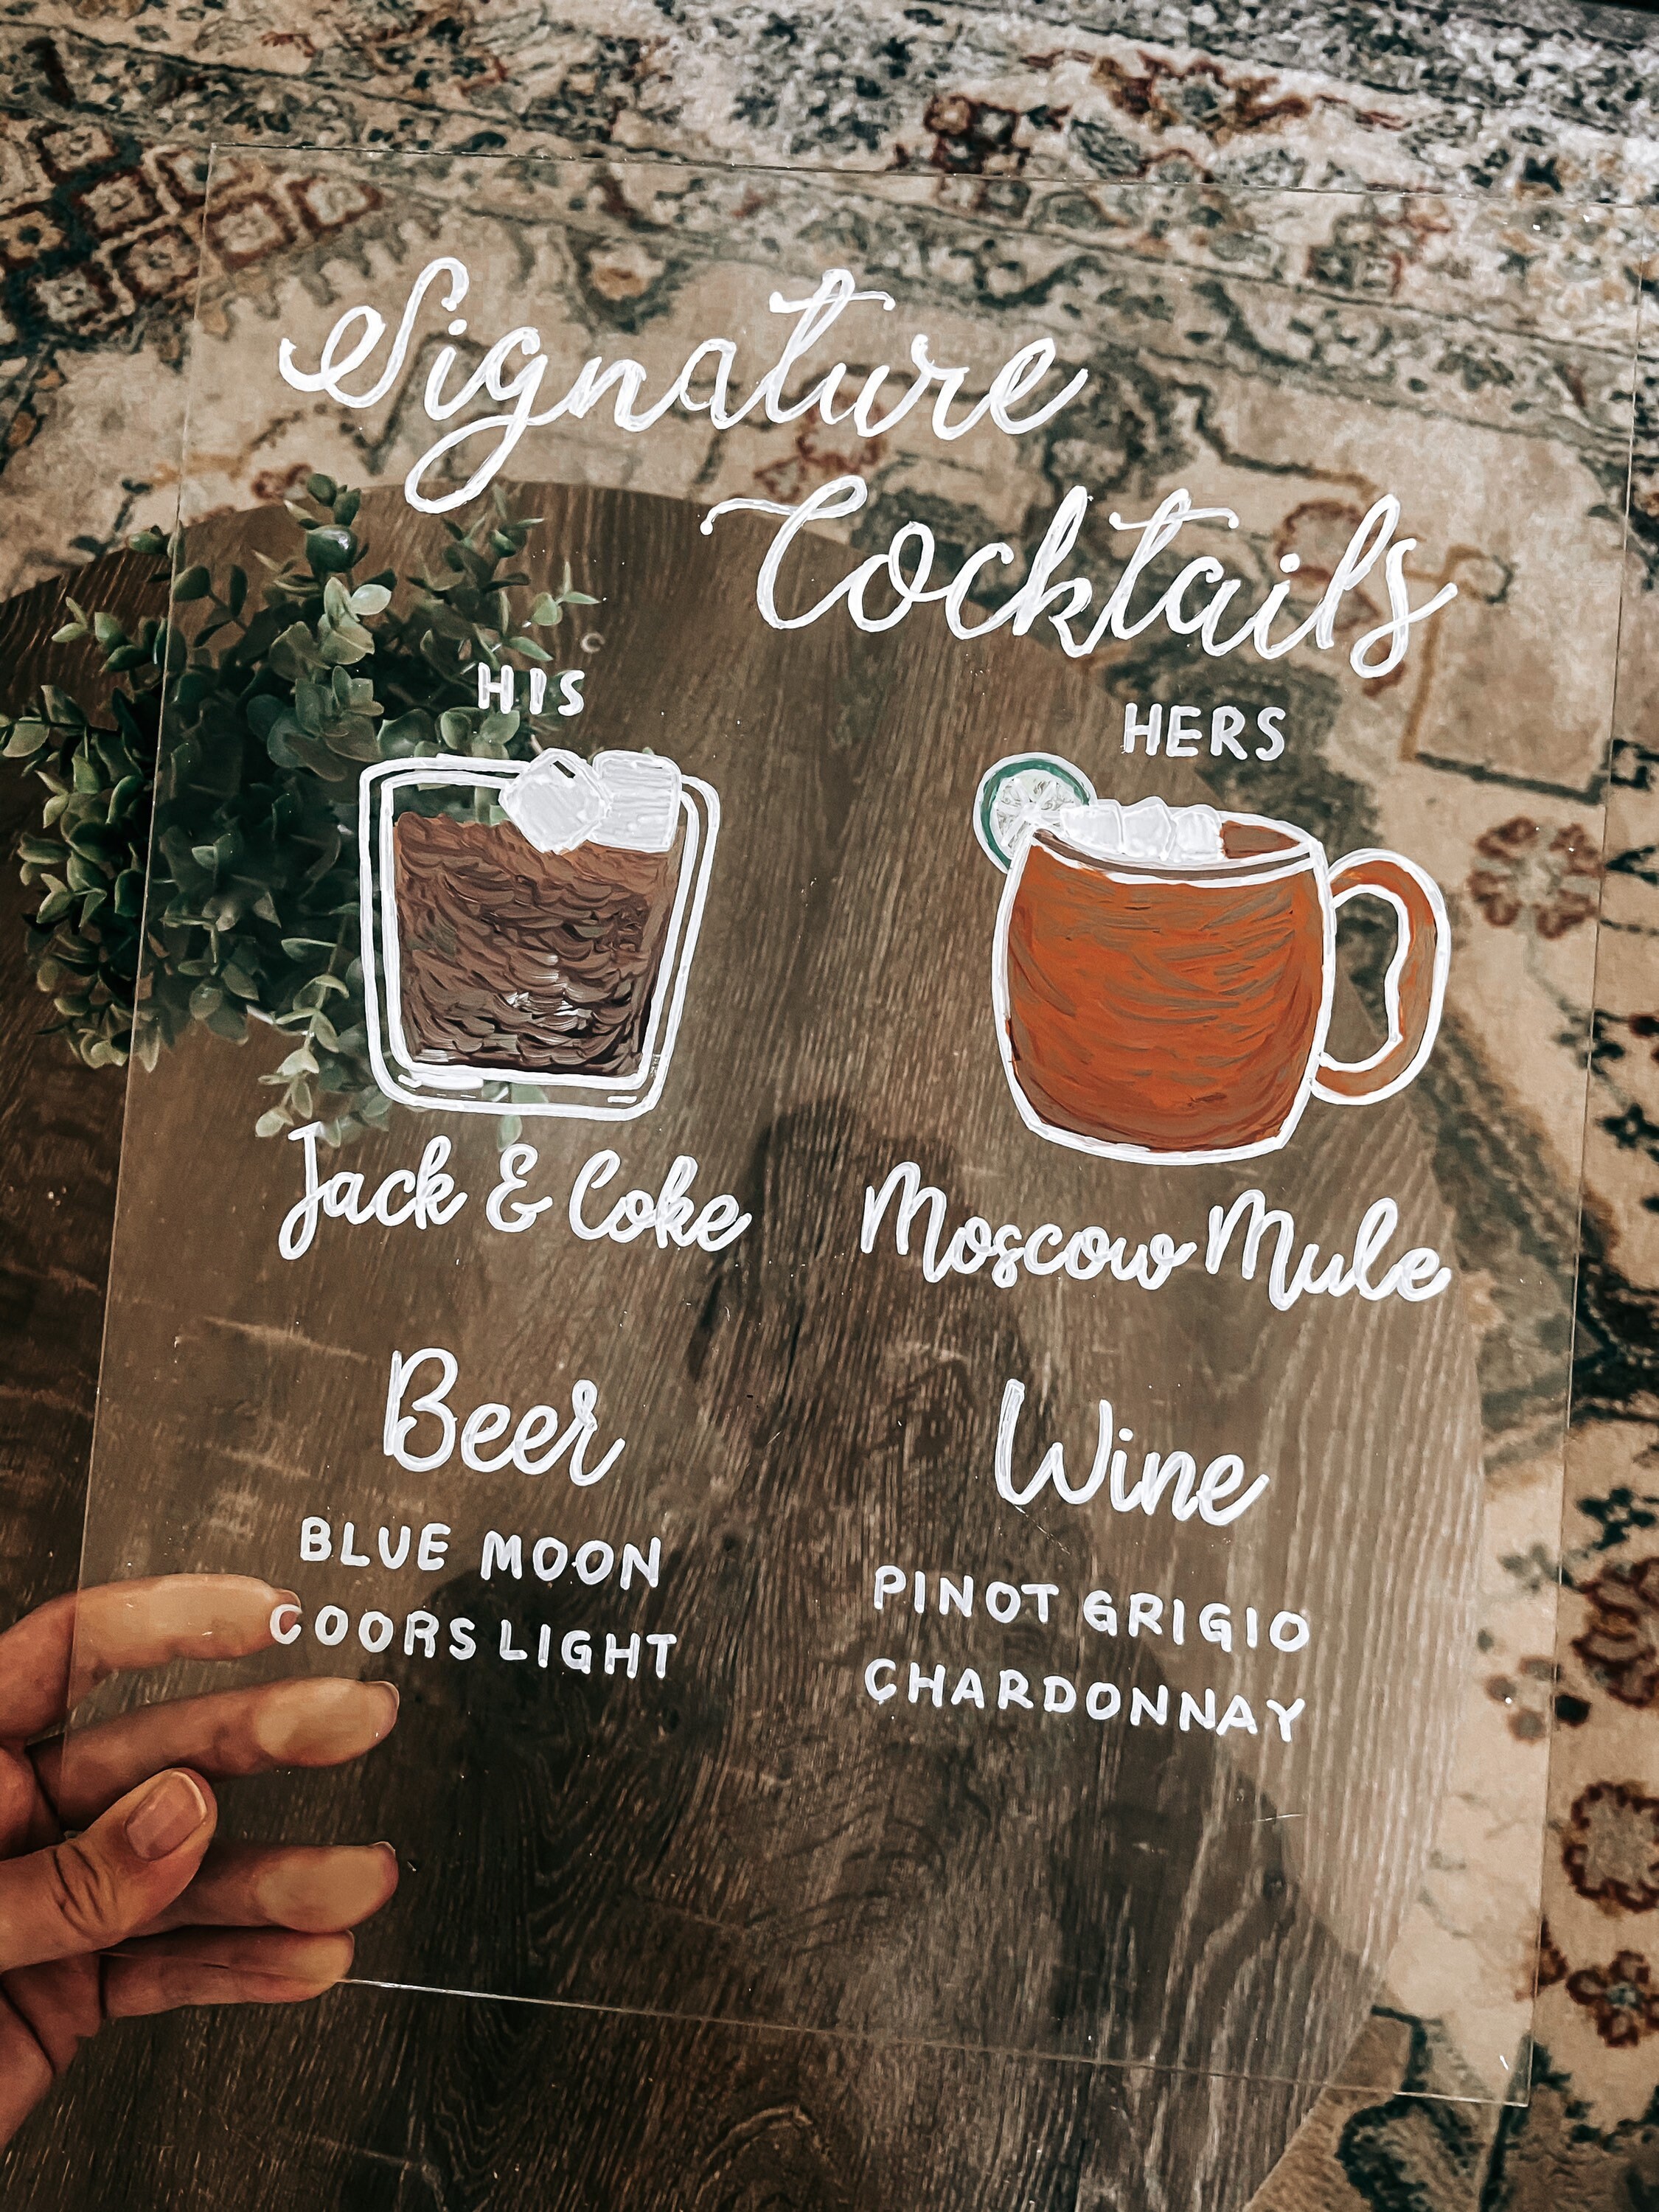 Signature
Cocktails
HIS
HERS
Jack & Coke
Moscow Mule
Beer
BLUE MOON
COORS LIGHT
Wine
PINOT GRIGIO
CHARDONNAY